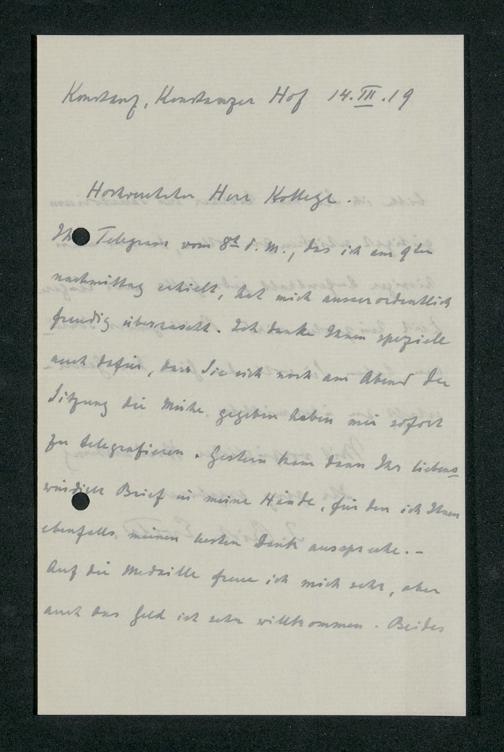 Konstanz, Konstanzer Hof 14.III.19
Hochverehrter Herr Kollege.
Ihr Telegram vom 8ten d. M., das ich am 9ten
nachmittag erhielt, hat mich ausserordentlich
freudig überrascht. Ich danke Ihnen speziell
auch dafür, dass Sie sich noch am Abend der
Sitzung die Mühe gegeben haben mir sofort
zu telegrafieren. Gestern kam dann Ihr liebens-
würdiger Brief in meine Hände, für den ich Ihnen
ebenfalls meinen besten Dank ausspreche. –
Auf die Medaille freue ich mich sehr, aber
auch das Geld ist sehr willkommen. Beides